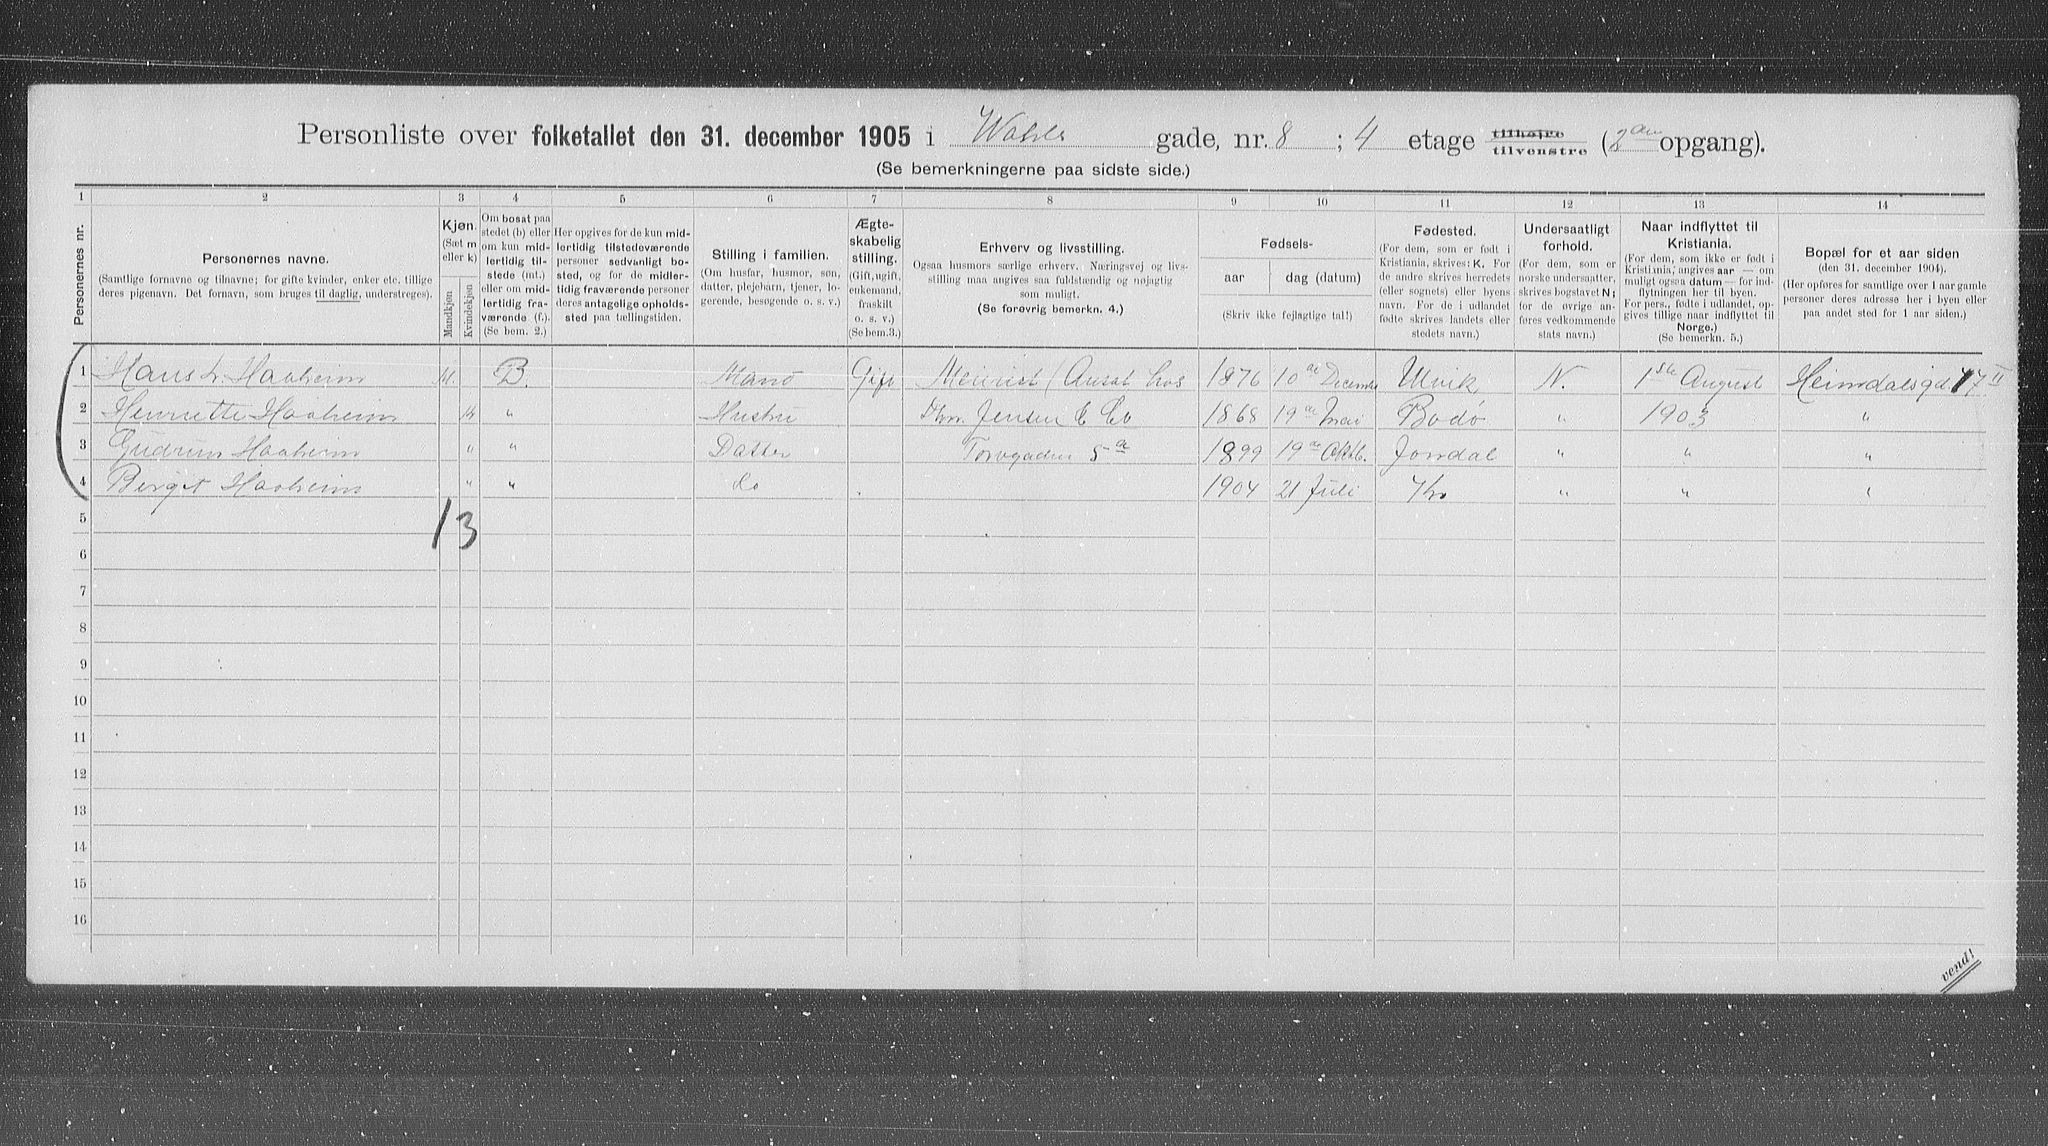 Personliste over folketallet den 31. december 1905 i Wahls gade, nr. 8 ; 4 etage tilhøjre tilvenstre (2den opgang).
(Se bemerkningerne paa sidste side.)
1 2 3 4 5 6 7 8 9 10 11 12 13 14
Personernes nr.
Personernes navne.
(Samtlige fornavne og tilnavne; for gifte kvinder, enker etc. tillige
deres pigenavn. Det fornavn, som bruges til daglig, understreges).
Kjøn.
(Sæt m
eller k)
Mandkjøn
Kvindekjøn
Om bosat paa
stedet (b) eller
om kun mid-
lertidig til-
stede (mt.)
eller om mid-
lertidig fra-
værende (f.).
(Se bem. 2.)
Her opgives for de kun mid-
lertidig tilstedeværende
personer sedvanligt bo-
sted, og for de midler-
tidig fraværende personer
deres antagelige opholds-
sted paa tællingstiden.
Stilling i familien.
(Om husfar, husmor, søn,
datter, plejebarn, tjener, lo-
gerende, besøgende o. s. v.)
Ægte-
skabelig
stilling.
(Gift, ugift,
enkemand,
fraskilt
o. s. v.)
(Se bem. 3.)
Erhverv og livsstilling.
Ogsaa husmors særlige erhverv. Næringsvej og livs-
stilling maa angives saa fuldstændig og nøjagtig
som muligt.
(Se forøvrig bemerkn. 4.)
Fødsels-
aar dag (datum)
(Skriv ikke fejlagtige tal!)
Fødested.
(For dem, som er født i
Kristiania, skrives: K. For
de andre skrives herredets
(eller sognets) eller byens
navn. For de i udlandet
fødte skrives landets eller
stedets navn.)
Undersaatligt
forhold.
(For dem, som er
norske undersaatter,
skrives bogstavet N;
for de øvrige an-
føres vedkommende
stats navn.)
Naar indflyttet til
Kristiania.
(For dem, som ikke er født i
Kristiania, angives aar — om
muligt ogsaa datum — for ind-
flytningen her til byen.
For pers., fødte i udlandet, op-
gives tillige naar indflyttet til
Norge.)
(Se bemerkn. 5.)
Bopæl for et aar siden
(den 31. december 1904).
(Her opføres for samtlige over 1 aar gamle
personer deres adresse her i byen eller
paa andet sted for 1 aar siden.)
1 Hans L. Haaheim M. B. Mand Gift (Ansat hos 1876 10de Decembr Ulvik N. 1ste August Heimdalsgd 17 II
2 Henriette Haaheim K " Hustru Jensen & Co 1868 19de Mai Bodø " 1903 "
3 Gudrun Haaheim " " Datter Torvgaden 5a 1899 19de Oktb. Jondal " " "
4 Birgit Haaheim " " do 1904 21 Juli Kr " " "
5 1 3
6
7
8
9
10
11
12
13
14
15
16
vend!